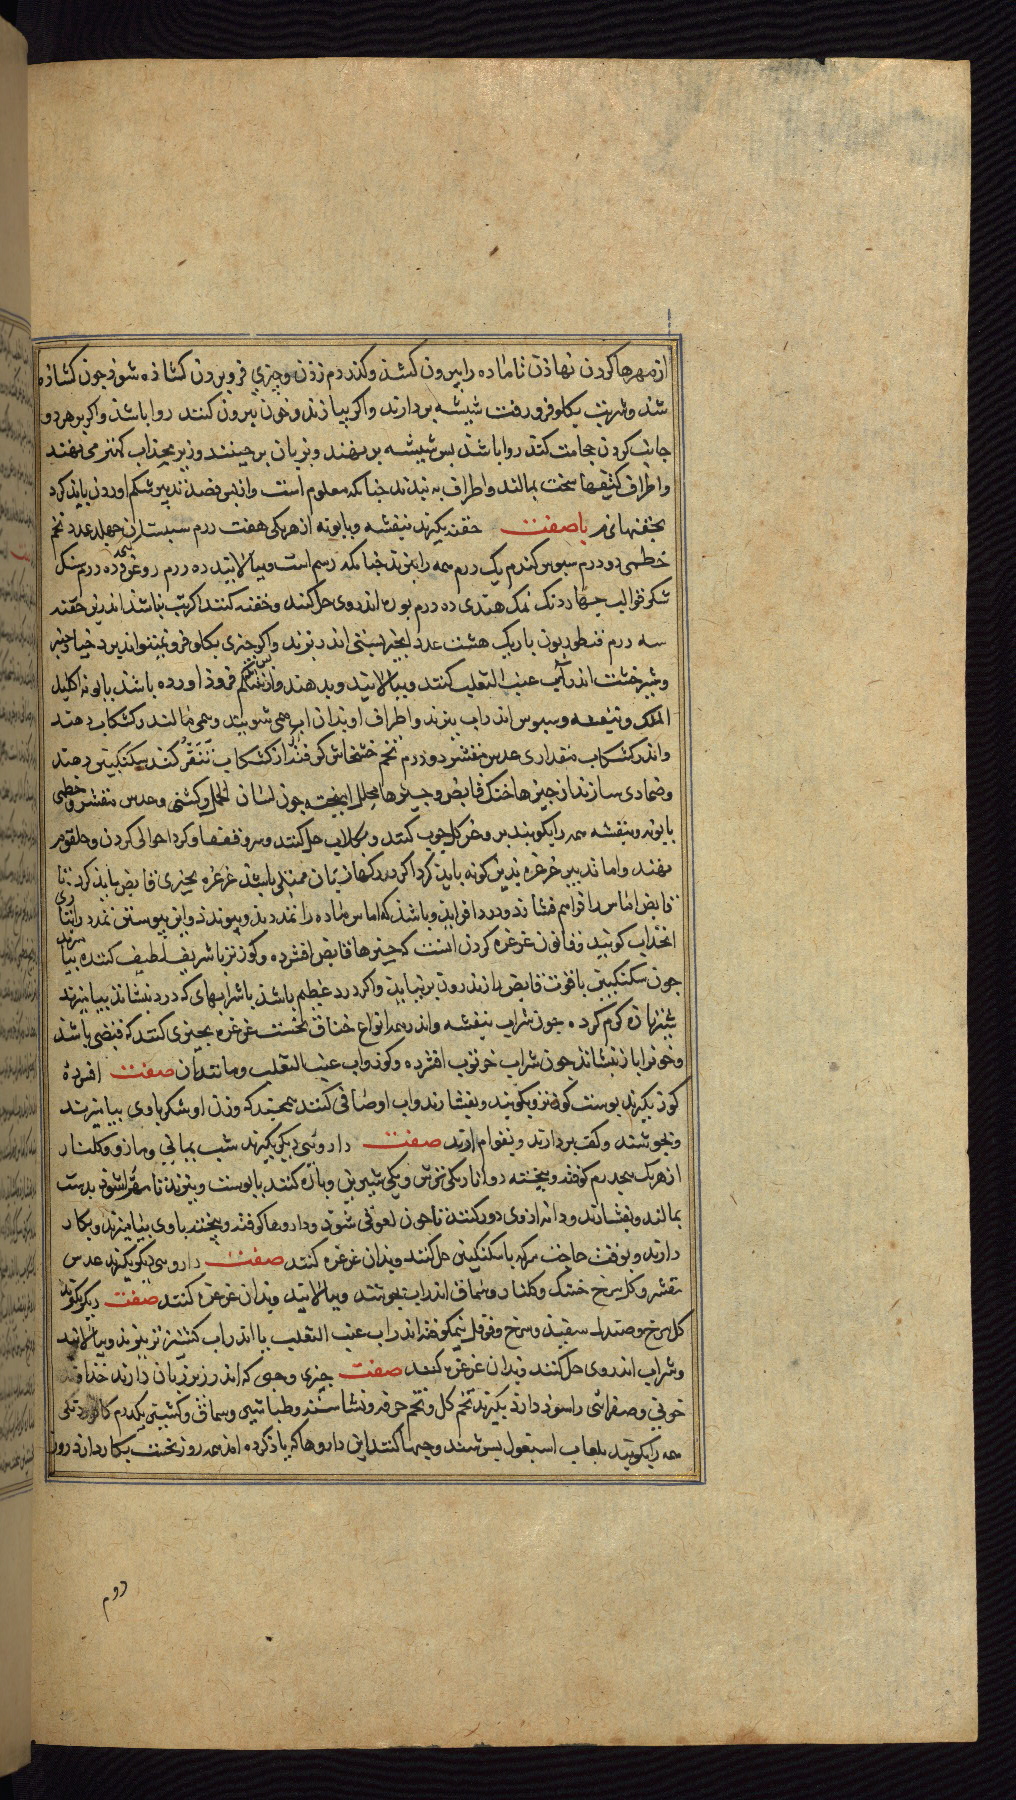 از مهرها کردن نهاذن تا ماده را بیرون کشذ و کذر دم زذن و چیزی فرو بردن کشاذه شوذ و جون کشاذه
شذ و شربت بکلو فرو رفت شیشه بر دارند و اکر بیازنذ و خون بیرون کنند روا باشذ و اکر بر هر دو
جانب کردن حجامت کنند روا باشذ بس شیشه بر نهند و بزبان بر جینند و زیر
و اطراف سخت بمالند و اطراف به بندند جنانکه معلوم است و از بس فصد تدبیر شکم اوردن باید کرد
بحقنهای نرم یا صفت حقنه بکیرند بنفشه و بابونه از هر یکی هفت درم سبستان جهل عدد تخم
خطمی دو درم سبوس کندم یک درم همه را ببزند جنانکه رسم است و ببالایند ده درم روغن ده درم سنک
شکر قوالب جهار دنک نمک هندی ده درم بوره اندر وی حل کنند و حقنه کنند اکر تب نباشذ اندرین حقنه
سه درم قنطوریون باریک هشت عدد انجیر بستی اندر بزند و اکر چیزی بکلو فرو بتواند برد خیار جنبر
و شیر خشت اندر آب عنب الثعلب کنند و ببالایند و بدهند و از شکم فروذ اورده باشذ بابونه اکلیل
الملک و بنفشه و سبوس اندر اب ببزند و اطراف او بدان اب همی شویند و همی مالند و کشکاب دهند
و اندر کشکاب مقداری عدس مقشر دو درم تخم خشخاش کوفته از کشکاب کند سکنکبین دهند
و ضمادی سازند از جیزها خنک قابض و جیزها محلل امیخته جون لسان الحمل و کشنی و عدس مقشر و خطمی
بابونه و بنفشه همه را بکوبند بروغن کل جرب کنند و بکلاب حل کنند و بر و قفا و کردا حوالی کردن و حلقوم
نهند و اما تدبیر غرغره بدین کونه باید کرد اکر رکها زبان ممتلی باشذ غرغره بجیزی قابض باید کرد تا
قابض اماس را فراهم فشارد و درد افزاید و باشذ که اماس ماده را
انجذاب کویند و قانون غرغره کردن انست که جیزها قابض افشرده و کوز تر با شربت لطیف کننده بیامیزند
جون سکنکبین با قوت قابض باز ندروت برنیاید و اکر درد عظیم باشذ با شرابهای که درد بنشاند بیامیزند
شیر تازه کرم کرده جون شراب بنفشه و اندر همه انواع خناق نخست غرغره بجیزی کنند که قبضی باشذ
و خون را باز نشاند جون شراب خرنوب افشرده و کوز و اب عنب الثعلب و مانند ان صفت افشرده
کوز بکیرند بوست کوز تر و بکوبند و بفشارند و اب او صافی کنند همجند که وزن او شکر باوی بیامیزند
و بجوشند و کف بردارند و بقوام ارند صفت داروئی دیکر بکیرند شب یمانی و مازو و کلنار
از هر یک سه درم کوفته و بیخته دو انار یکی ترش و یکی شیرین و باره کنند با بوست و ببزند تا مهرا شوذ بدست
بمالند و بفشارند و دانه از وی دور کنند تا جون لعوقی شوذ و داروها کوفته و بیخته باوی بیامیزند و بکار
دارند و بوقت حاجت سرکه با سکنکبین حل کنند و بدان غرغره کنند صفت داروئی دیکر بکیرند عدس
مقشر و کل سرخ خشک و کلنار و سماق اندر اب بجوشند و ببالایند و بدان غرغره کنند صفت دیکر بکیرند
کل سرخ و صندل سفید و سرخ و فوفل نیمکوفته اندر اب عنب الثعلب یا اندر اب کشنیز تر ببزند و ببالایند
و شراب اندر وی حل کنند و بدان غرغره کنند صفت جیزی و حبی که اندر زیر زبان دارند خناق
خونی و صفرائی را سوذ دارد بکیرند تخم کل و تخم خرفه و نشاسته و طباشیر و سماق و کشنیز یکدرم کافور دنکی
همه را بکوبند بلعاب اسبغول بسرشند و حبها کنند این داروها که یاذ کرده امذ همه روز نخست بکار دارند روز
دوم